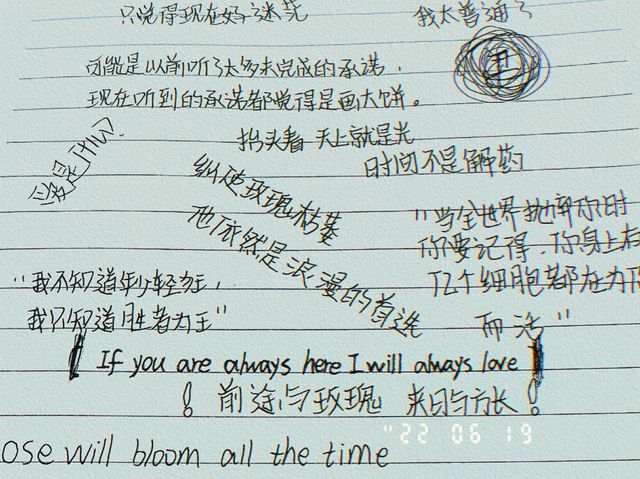 只觉得现在好迷茫
我太普通了
可能是以前听了太多未完成的承诺,
现在听到的承诺都觉得是画大饼。
抬头看 天上就是光
时间不是解药
爱是
纵使玫瑰枯萎
他依然是浪漫的首选
"当全世界抛弃你时
你要记得,你身上有
个细胞都在为你
而活"
"我不知道年少轻狂,
我只知道胜者为王"
If you are always here I will always love
! 前途与玫瑰 来日与方长 !
"22 06 19
ose will bloom all the time